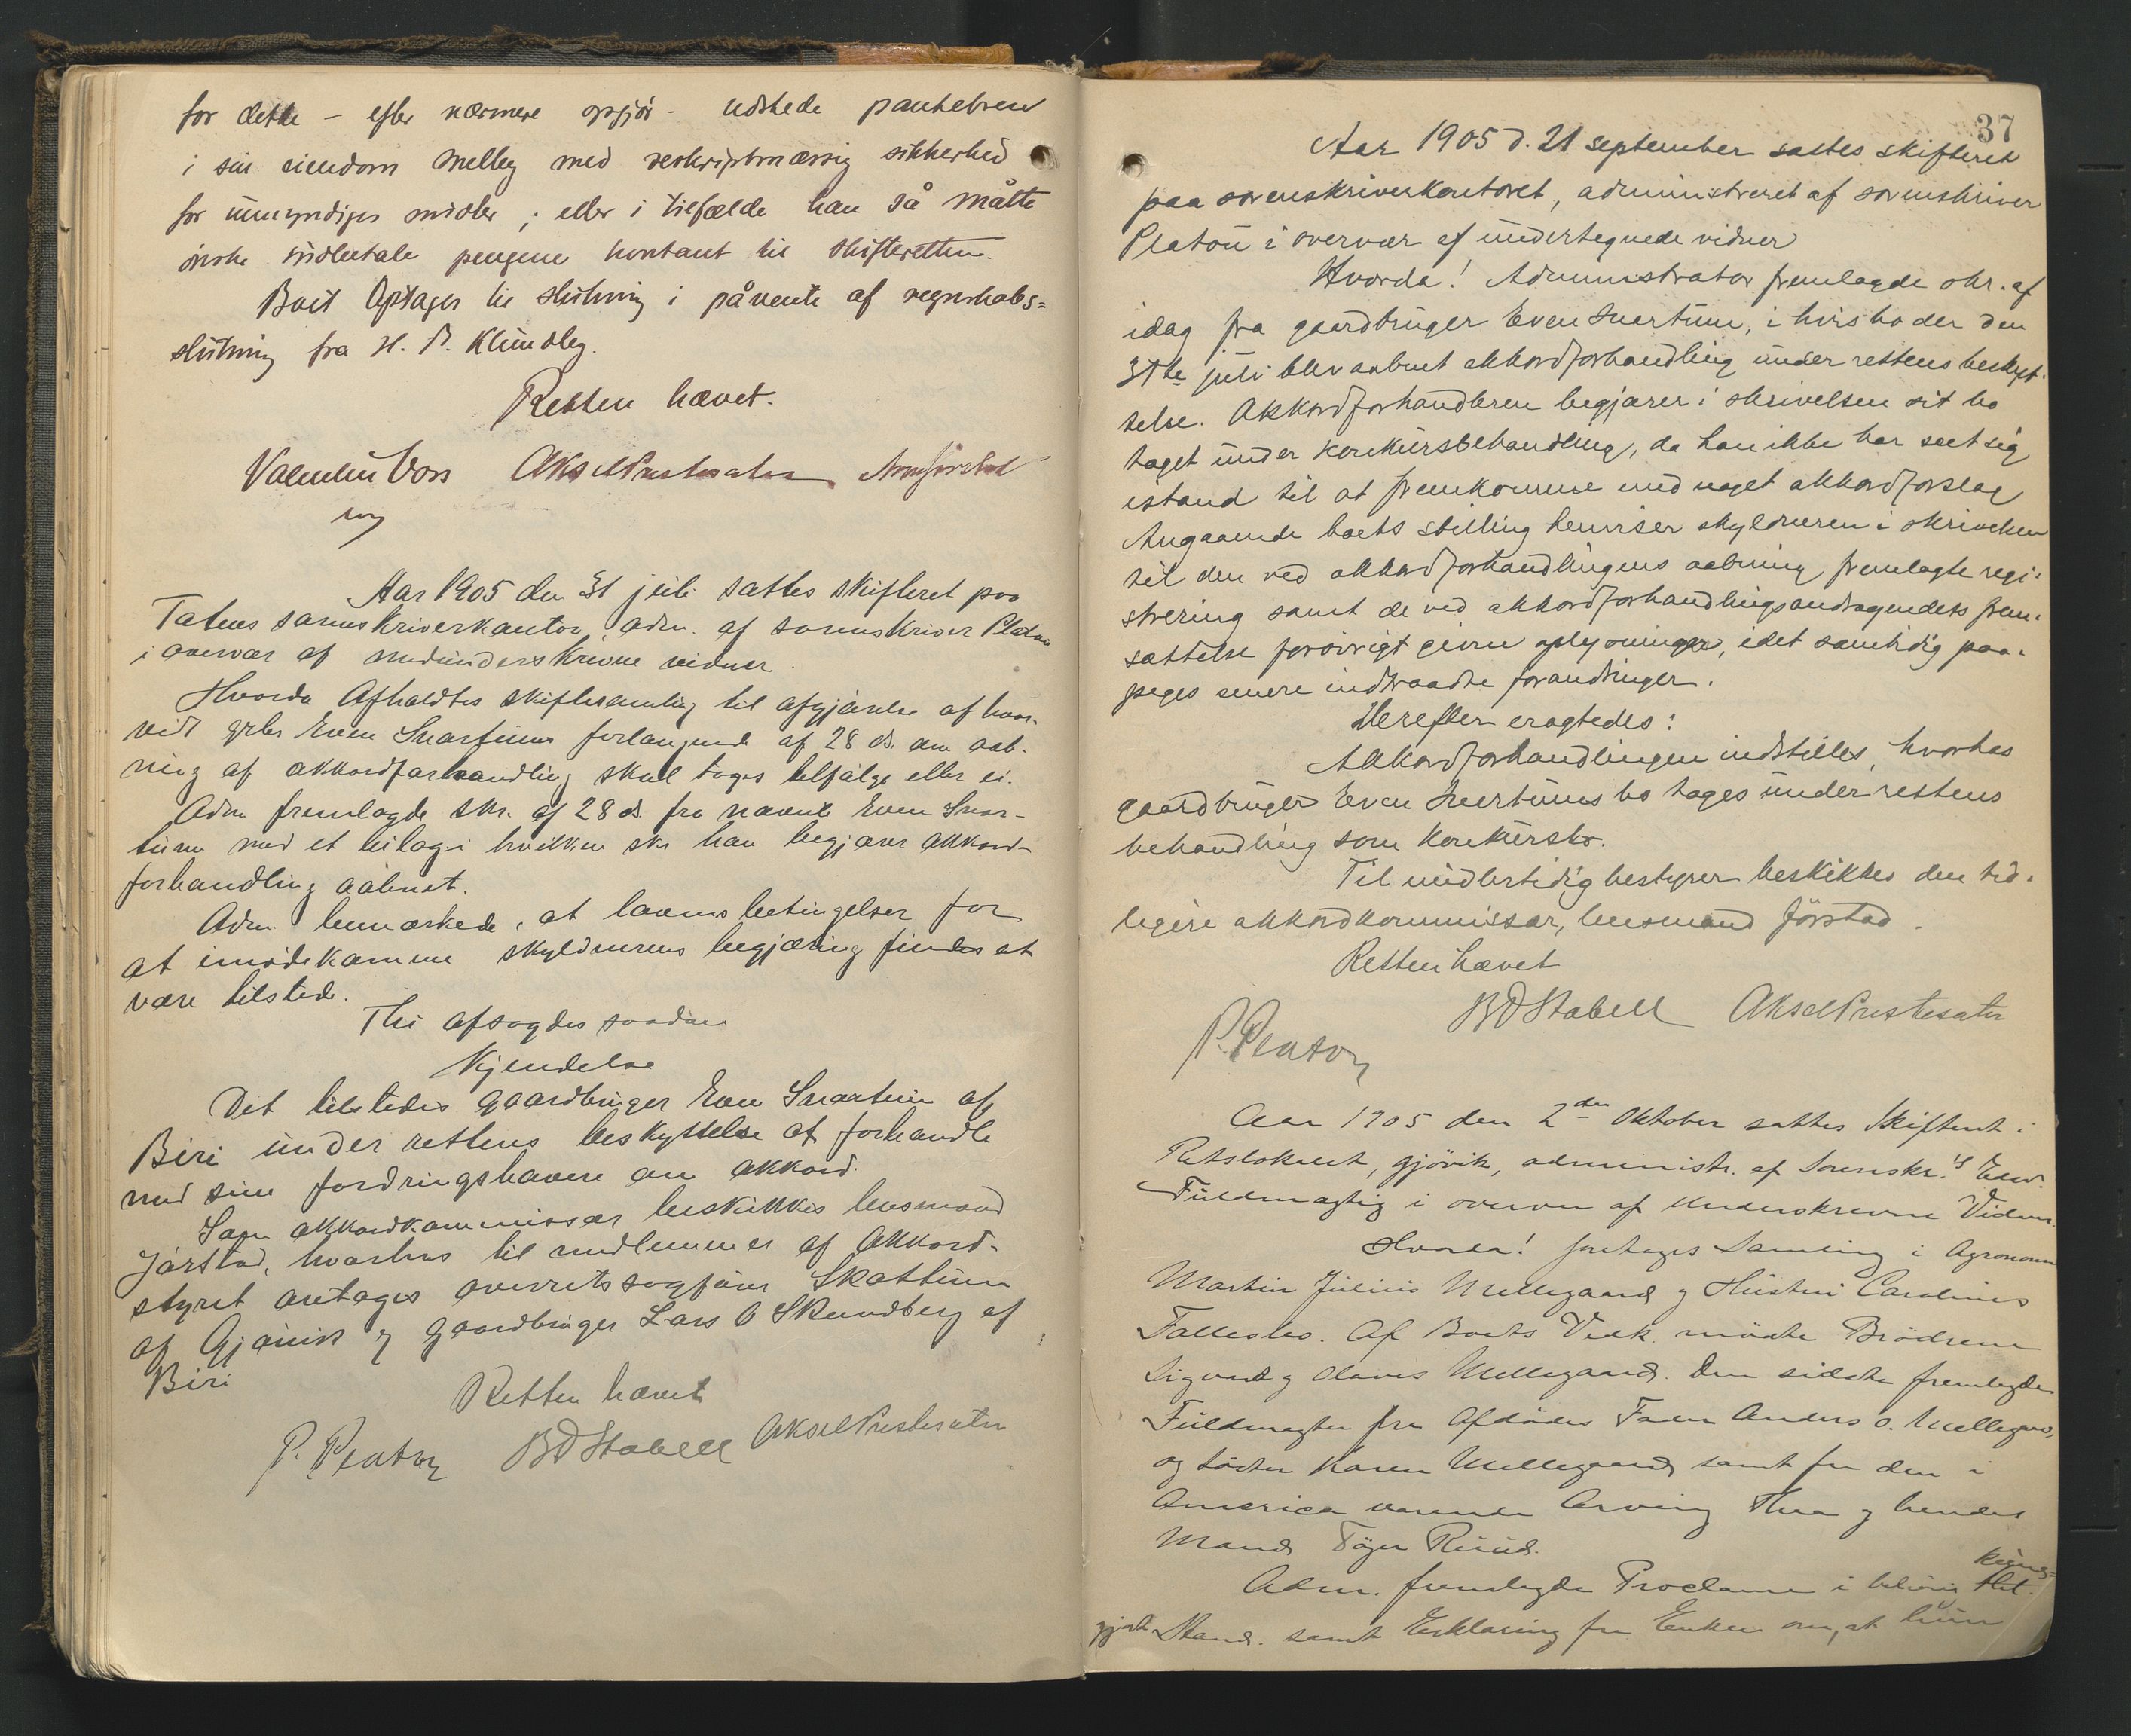 for dette – efter nærmere opgjör – udstede pantebrev
i sin eiendom Melby med reskriptmæssig sikkerhed
for umyndiges midler; eller i tilfælde han så måtte
önske indbetale pengene kontant til skifteretten.
Boet Optages til slutning i påvente af regnskabs=
slutning fra H. P. Klundby.
Retten hævet.
Valentin Voss Aksel Prestesater
Aar 1905 den 31 juli sattes skifteret paa
Totens sorenskriverkontor, adm. af sorenskriver Platou
i overvær af medunderskrevne vidner.
Hvorda Afholdtes skiftesamling til afgjörelse af hvor-
vidt gbr. Even Snartums forlangende af 28 ds. om aab-
ning af akkordforhandling skal tages tilfölge eller ei.
Adm fremlagde skr. af 28 ds. fra nævnte Even Snar-
tum med et bilag i hvilken skr han begjærer akkord-
forhandling aabnet.
Adm. bemærkede, at lovens betingelser for
at imödekomme skyldnerens begjæring findes at
være tilstede.
Thi afsagdes saadan
Kjendelse
Det tilstedes gaardbruger Even Snartum af
Biri under rettens beskyttelse at forhandle
med sine fordringshavere om akkord.
Som akkordkommissær beskikkes lensmand
Jörstad, hvorhos til medlemmer af akkord-
styret antages overretssagförer Skattum
af Gjövik og gaardbruger Lars O Skundberg af
Biri
Retten hævet
P. Platou BD Stabell Aksel Prestesater
37
Aar 1905 d. 21 september sattes skifteret
paa sorenskriverkontoret, administreret af sorenskriver
Platou i overvær af undertegnede vidner
Hvorda! Administrator fremlagde skr. af
idag fra gaardbruger Even Snartum, i hvis bo der den
31te juli blev aabnet akkordforhandling under rettens beskyt-
telse. Akkordforhandleren begjærer i skrivelsen sit bo
taget under konkursbehandling, da han ikke har seet sig
istand til at fremkomme med noget akkordforslag
Angaaende boets stilling henviser skyldneren i skrivelsen
til den ved akkordforhandlingens aabning fremlagte regi-
strering samt de ved akkordforhandlingsandragendets frem-
sættelse forövrigt givne oplysninger, idet samtidig paa-
peges senere indtraadte forandringer.
Derefter eragtedes:
Akkordforhandlingen indstilles, hvorhos
gaardbruger Even Snartums bo tages under rettens
behandling som konkursbo.
Til midlertidig bestyrer beskikkes den tid-
ligere akkordkommissær, lensmand Jörstad.
Retten hævet
P. Platou BD Stabell Aksel Prestesater
Aar 1905 den 2den Oktober sattes Skifteret i
Retslokalet, Gjövik, administr. af Sorenskr.s Edsv.
Fuldmægtig i overvær af underskrevne Vidner.
Hvorda! foretages Samling i Agronom
Martin Julius Mellegaard og Hustru Carolines
Fællesbo. Af Boets Vedk. mödte Brödrene
Sigvart og Olaves Mellegaard. Den sidste fremlagde
Fuldmagter fra Afdödes Fader Anders O. Mellegaard,
og Söster Karen Mellegaard samt fra den i
America værende Arving Thea og hendes
Mand Töger Ruud.
Adm. fremlagde Proclama i behörig kundgjort
Stand. samt Erklæring fra Enken om, at hun